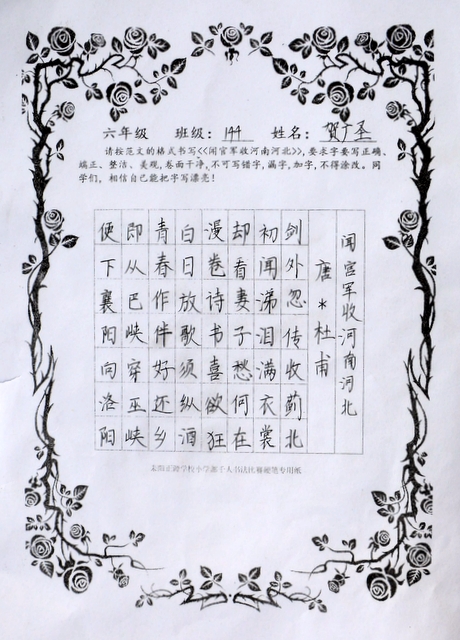 六年级 班级：144 姓名：贺广圣
请按范文的格式书写<<闻官军收河南河北>>，要求字要写正确、
端正、整洁、美观，卷面干净，不可写错字，漏字，加字，不得涂改。同
学们，相信自己能把字写漂亮！
闻官军收河南河北
唐*杜甫
剑外忽传收蓟北
初闻涕泪满衣裳
却看妻子愁何在
漫卷诗书喜欲狂
白日放歌须纵酒
青春作伴好还乡
即从巴峡穿巫峡
便下襄阳向洛阳
耒阳正源学校小学部千人书法比赛硬笔专用纸